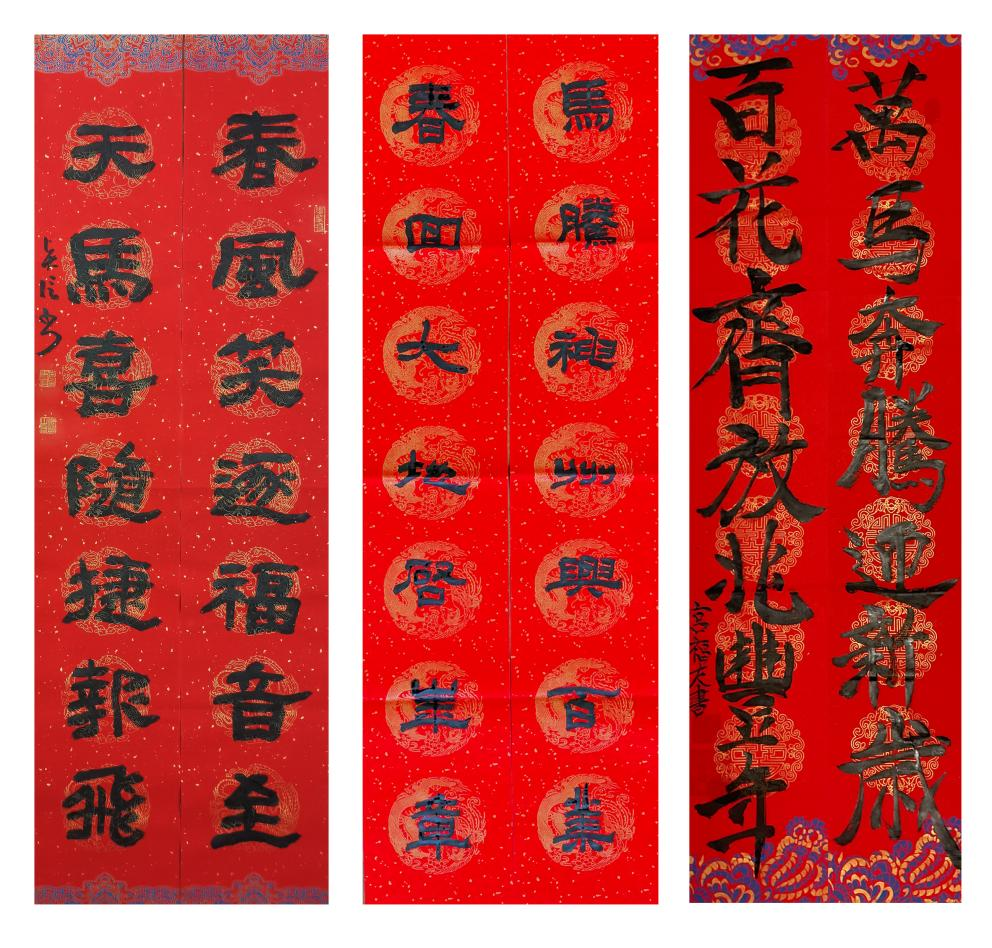 春風笑逐福音至
天馬喜隨捷報飛
馬騰神州興百業
春回大地啓華章
萬馬奔騰迎新歲
百花齊放兆豐年